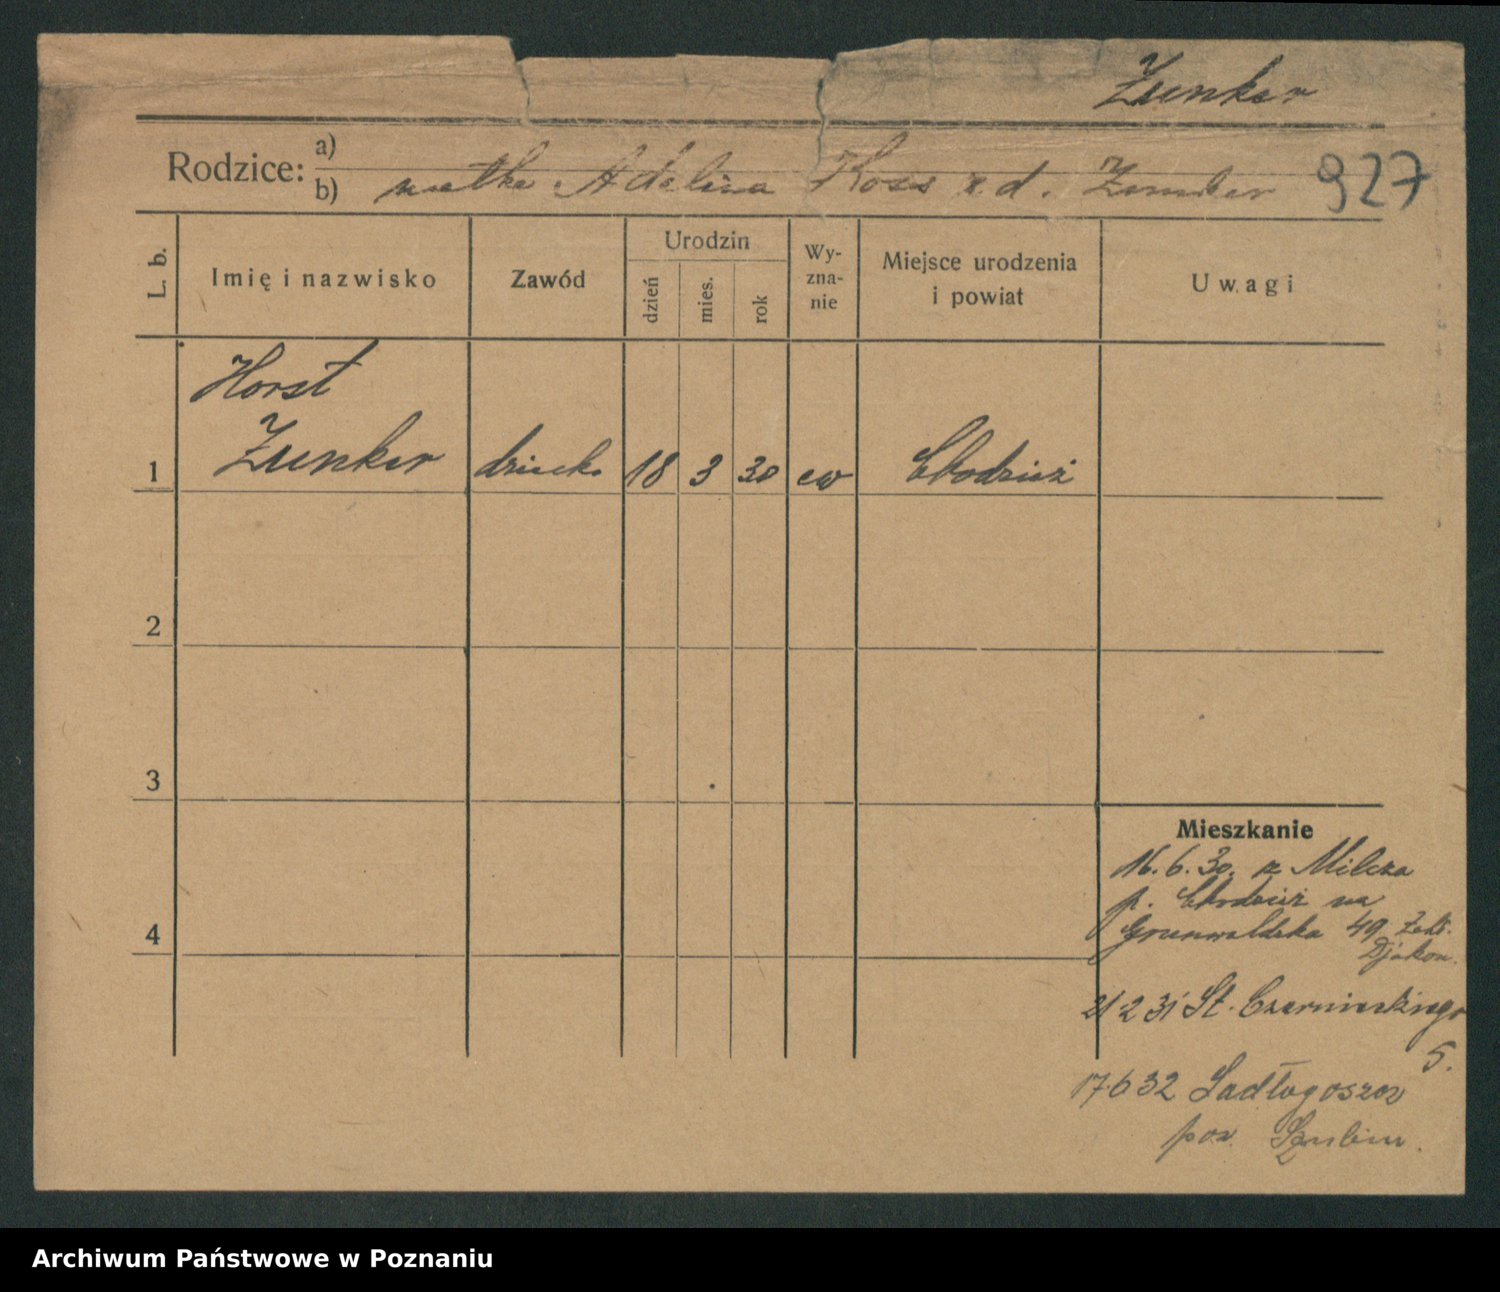 Zunker
Rodzice: a)
b) matka Adelina Koss z d. Zunker 927
L. b.
Imię i nazwisko
Zawód
Urodzin
dzień
mies.
rok
Wy-
zna-
nie
Miejsce urodzenia
i powiat
Uwagi
Horst
1 Zunker dziecko 18 3 30 ew Chodzież
2
3
4
Mieszkanie
16.6.30. z Milcza
p. Chodzież na
Grunwaldzka 49 Zakł.
Djakon.
21 2 31 St. Czarnieckiego
5.
17 6 32 Sadłogoszcz
pow. Szubin.
Archiwum Państwowe w Poznaniu